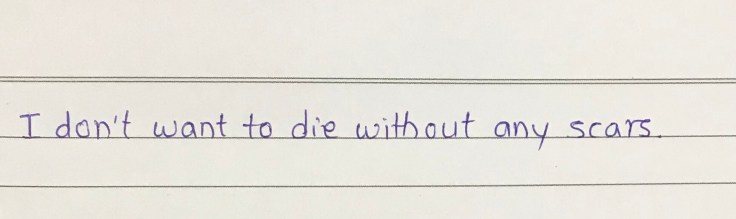 I don't want to die without any scars.